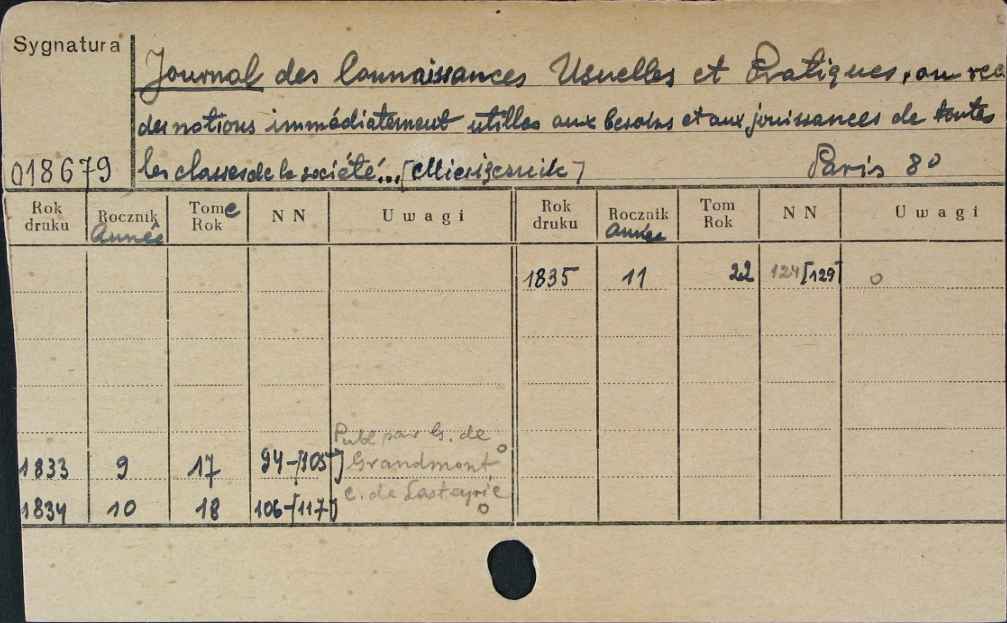 Sygnatura
Journal des Connaissances Usuelles et Pratiques, ou rec
des notions immédiatement utiles aux besoins et aux jouissances de toutes
018679 les classes de la société... [Miesięcznik] Paris 8º
Rok druku Rocznik Année Tome Rok NN Uwagi Rok druku Rocznik Année Tom Rok NN Uwagi
1835 11 22 124[129] o
Publ par G. de
1833 9 17 94-[105] Grandmont o
C. de Lasteyrie
1834 10 18 106-[117] o